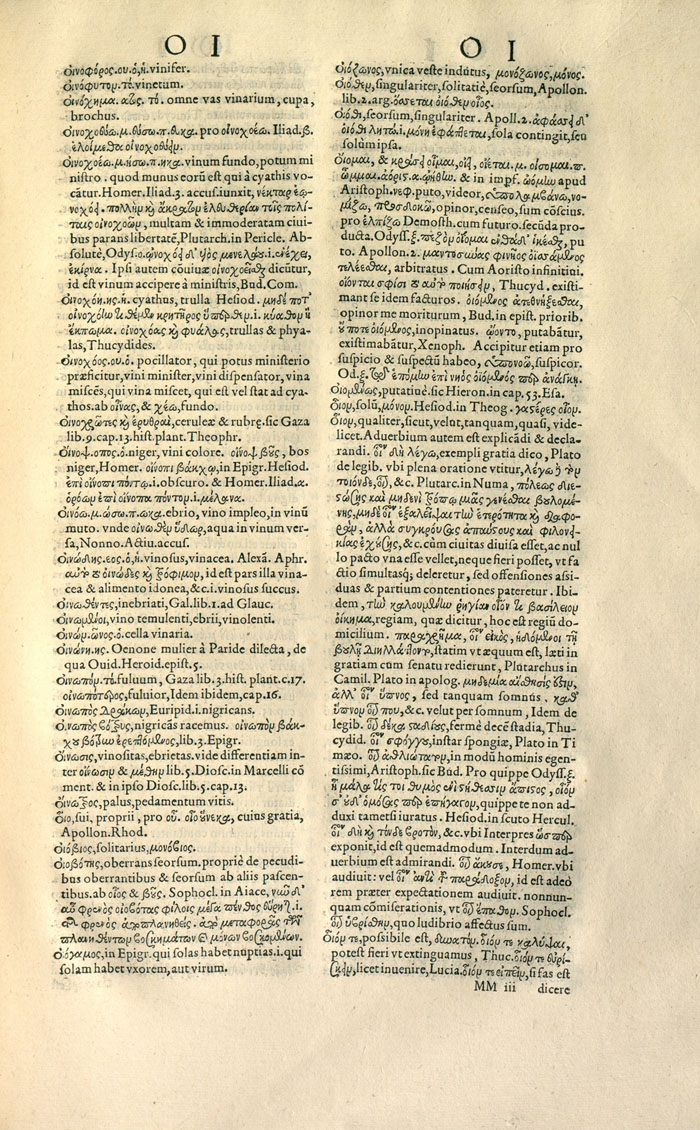 O I
οἰνοφόρος.ου.ὁ,ἡ. vinifer.
οἰνόφυτον.τό. vinetum.
οἰνόχημα.ατος.τό. omne vas vinarium, cupa,
brochus.
pro οἰνοχοέω. Iliad.β.
οἰνοχοέω.μ.ήσω.π.ηκα. vinum fundo, potum mi
nistro. quod munus eorū est qui à cyathis vo-
cātur. Homer. Iliad.3. accus. iunxit, νέκταρ ἐῳ-
νοχόει. πολλὴν καὶ ἄκρατον ἐλευθερίαν τοῖς πολί-
ταις οἰνοχοῶν, multam & immoderatam ciui-
bus parans libertatē, Plutarch. in Pericle. Ab-
solutè, Odys.ο.
Ipsi autem cōuiuæ dicūtur,
id est vinum accipere à ministris, Bud. Com.
οἰνοχόη.ης.ἡ. cyathus, trulla Hesiod. μηδέ ποτ'
οἰνοχόην τιθέμεν κρητῆρος ὕπερθεν.i. κύαθον ἢ
ἔκπωμα. οἰνοχόας καὶ φυάλας, trullas & phya-
las, Thucydides.
οἰνοχόος.ου.ὁ. pocillator, qui potus ministerio
præficitur, vini minister, vini dispensator, vina
miscēs, qui vina miscet, qui est vel stat ad cya-
thos. ab οἴνας, & χέω, fundo.
οἰνοχρῶτες καὶ ἐρυθραί, ceruleæ & rubræ. sic Gaza
lib.9. cap.13. hist. plant. Theophr.
οἶνοψ.οπος.ὁ. niger, vini colore. οἶνοψ βοῦς, bos
niger, Homer. οἴνοπι βάκχῳ, in Epigr. Hesiod.
ἐπὶ οἴνοπι πόντῳ.i. obscuro. & Homer. Iliad.α.
ὁρόων ἐπὶ οἴνοπα πόντον.i. μέλανα.
οἰνόω.μ.ώσω.π.ωκα. ebrio, vino impleo, in vinū
muto. vnde οἰνωθὲν ὕδωρ, aqua in vinum ver-
sa, Nonno. Actiu. accus.
οἰνώδης.εος.ὁ,ἡ. vinosus, vinacea. Alexā. Aphr.
οἰνῶδες καὶ τρόφιμον, id est pars illa vina-
cea & alimento idonea, &c.i. vinosus succus.
οἰνωθέντες, inebriati, Gal. lib.1. ad Glauc.
οἰνωμένοι, vino temulenti, ebrii, vinolenti.
οἰνών.ῶνος.ὁ. cella vinaria.
οἰνώνη.ης. Oenone mulier à Paride dilecta, de
qua Ouid. Heroid. epist.5.
οἰνωπόν.τό. fuluum, Gaza lib.3. hist. plant. c.17.
οἰνωπότερος, fuluior, Idem ibidem, cap.16.
οἰνωπὸς δράκων, Euripid.i. nigricans.
οἰνωπὸς βότρυς, nigricās racemus. οἰνωπὸν βάκ-
χου βότρυν ἐρεπτόμενος, lib.3. Epigr.
οἴνωσις, vinositas, ebrietas. vide differentiam in-
ter οἴνωσιν & μέθην lib.5. Diosc. in Marcelli cō
ment. & in ipso Diosc. lib.5. cap.13.
palus, pedamentum vitis.
οἷο, sui, proprii, pro οὗ. οἷο οὕνεκα, cuius gratia,
Apollon. Rhod.
οἰόβιος, solitarius, μονόβιος.
οἰοβότης, oberrans seorsum. propriè de pecudi-
bus oberrantibus & seorsum ab aliis pascen-
tibus. ab οἶος & βοῦς. Sophocl. in Aiace, νῦν δ'
αὖ φρενὸς οἰοβότας φίλοις μέγα πένθος εὕρηται.i.
φρενὸς ἀποπλανηθείς. ἀπὸ μεταφορᾶς τῶν
πλανηθέντων βοσκημάτων καὶ μόνων βοσκομένων.
οἰόγαμος, in Epigr. qui solas habet nuptias.i. qui
solam habet vxorem, aut virum.
O I
οἰόζωνος, vnica veste indutus, μονόζωνος, μόνος.
οἰόθεν, singulariter, solitariè, seorsum, Apollon.
lib.2. arg. οἰόθεν οἶος.
οἰόθι, seorsum, singulariter. Apoll.2.
μόνη ἐφάπτεται, sola contingit, seu
solùm ipsa.
οἴομαι, & κράσει οἶμαι, οἴῃ, οἴεται.μ. οἰήσομαι.π.
& in impf. ᾠόμην apud
Aristoph. νεφ. puto, videor, ὑπολαμβάνω, νο-
μίζω, προσδοκῶ, opinor, censeo, sum cōscius.
pro ἐλπίζω Demosth. cum futuro. secūda pro-
ducta. Odyss.ξ. pu
to. Apollon.2. μαντοσύνας φινῆος
τελέεσθαι, arbitratus. Cum Aoristo infinitiui.
οἴονταί σφισι ποιῆσαι, Thucyd. existi-
mant se idem facturos. οἰόμενος ἀπεθνήξεσθαι,
opinor me moriturum, Bud. in epist. priorib.
οὔποτε οἰόμενος, inopinatus. ᾤοντο, putabātur,
existimabātur, Xenoph. Accipitur etiam pro
suspicio & suspectū habeo, ὑπονοῶ, suspicor.
Od.ξ.
οἰομένως, putatiuè. sic Hieron. in cap.53. Esa.
οἶον, solū, μόνον. Hesiod. in Theog. γαστέρες οἶον.
οἷον, qualiter, sicut, velut, tanquam, quasi, vide-
licet. Aduerbium autem est explicādi & decla-
randi. οἷον δὴ λέγω, exempli gratia dico, Plato
de legib. vbi plena oratione vtitur, λέγω
τοιόνδε, &c. Plutarc. in Numa, πόλεως
καὶ μηδενὶ τρόπῳ μιᾶς γενέσθαι βουλομέ-
νης, μηδὲ οἷον ἐξαλεῖψαι τὴν ἑτερότητα καὶ διαφο-
ράν, ἀλλὰ συγκρούσεις ἀπαύστους καὶ φιλονει-
κίας ἐχούσης, &c. cùm ciuitas diuisa esset, ac nul
lo pacto vna esse vellet, neque fieri posset, vt fa
ctio simultasq; deleretur, sed offensiones assi-
duas & partium contentiones pateretur. Ibi-
dem, τὴν καλουμένην ῥηγίαν οἷόν τι βασίλειον
οἴκημα, regiam, quæ dicitur, hoc est regiū do-
micilium. παραχρῆμα, οἷον εἰκός, ἡδόμενοι τῇ
βουλῇ διηλλάττοντο, statim vt æquum est, læti in
gratiam cum senatu redierunt, Plutarchus in
Camil. Plato in apolog. μηδεμία αἴσθησίς ἐστιν,
ἀλλ' οἷον ὕπνος, sed tanquam somnus. καθ'
ὕπνον οἷον που, &c. velut per somnum, Idem de
legib. οἷον δέκα σταδίους, fermè decē stadia, Thu-
cydid. οἷον σφόγγου, instar spongiæ, Plato in Ti
mæo. οἷον ἀθλιώτατον, in modū hominis egen-
tissimi, Aristoph. sic Bud. Pro quippe Odyss.ξ.
ἦ μάλα τίς τοι θυμὸς ἐνὶ στήθεσσιν ἄπιστος, οἷόν
σ' οὐδ' ὀμόσας περ ἐπήγαγον, quippe te non ad-
duxi tametsi iuratus. Hesiod. in scuto Hercul.
οἷον δὴ καὶ τόνδε βροτόν, &c. vbi Interpres ὥσπερ
exponit, id est quemadmodum. Interdum ad-
uerbium est admirandi. οἷον ἄκουσε, Homer. vbi
audiuit: vel οἷον ἀντὶ τοῦ παράδοξον, id est adeò
rem præter expectationem audiuit. nonnun-
quam cōmiserationis, vt οἷον ἔπαθον. Sophocl.
οἷον ὑβρίσθην, quo ludibrio affectus sum.
οἷόν τε, possibile est, δυνατόν. οἷόν τε καλύψαι,
potest fieri vt extinguamus, Thuc. οἷόν τε εὑρί-
σκειν, licet inuenire, Lucia. οἷόν τε εἰπεῖν, si fas est
MM iii dicere